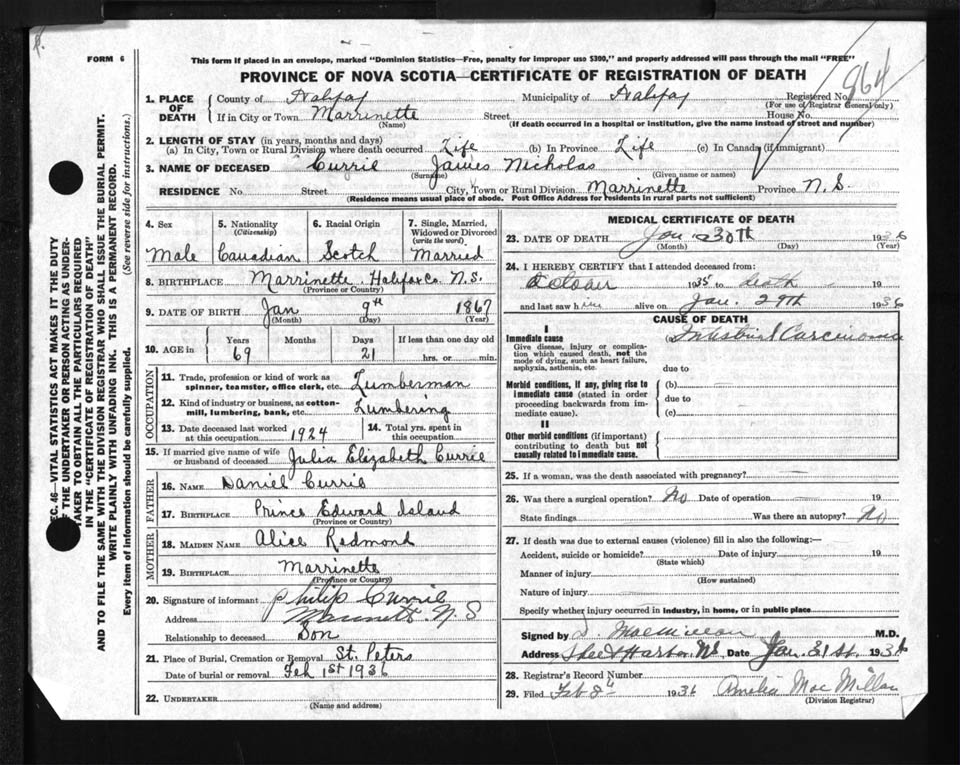 FORM 6
This form if placed in an envelope, marked "Dominion Statistics—Free, penalty for improper use $300," and properly addressed will pass through the mail "FREE"
PROVINCE OF NOVA SCOTIA—CERTIFICATE OF REGISTRATION OF DEATH
864
1. PLACE OF DEATH County of Halifax Municipality of Halifax Registered No.
(For use of Registrar General only)
If in City or Town Marrinette Street House No.
(Name) (If death occurred in a hospital or institution, give the name instead of street and number)
2. LENGTH OF STAY (in years, months and days)
(a) In City, Town or Rural Division where death occurred Life (b) In Province Life (c) In Canada (if immigrant)
3. NAME OF DECEASED Currie James Nicholas
(Surname) (Given name or names)
RESIDENCE No. Street City, Town or Rural Division Marrinette Province N.S.
(Residence means usual place of abode. Post Office Address for residents in rural parts not sufficient)
4. Sex Male
5. Nationality (Citizenship) Canadian
6. Racial Origin Scotch
7. Single, Married, Widowed or Divorced (write the word) Married
8. BIRTHPLACE Marrinette Halifax Co. N.S.
(Province or Country)
9. DATE OF BIRTH Jan 9th 1867
(Month) (Day) (Year)
10. AGE in Years Months Days If less than one day old
69 21 hrs. or min.
OCCUPATION
11. Trade, profession or kind of work as spinner, teamster, office clerk, etc. Lumberman
12. Kind of industry or business, as cotton-mill, lumbering, bank, etc. Lumbering
13. Date deceased last worked at this occupation 1924
14. Total yrs. spent in this occupation
15. If married give name of wife or husband of deceased Julia Elizabeth Currie
FATHER
16. NAME Daniel Currie
17. BIRTHPLACE Prince Edward Island
(Province or Country)
MOTHER
18. MAIDEN NAME Alice Redmond
19. BIRTHPLACE Marrinette
(Province or Country)
20. Signature of informant Philip Currie
Address N S
Relationship to deceased Son
21. Place of Burial, Cremation or Removal St. Peters
Date of burial or removal Feb 1st 1936
22. UNDERTAKER
(Name and address)
MEDICAL CERTIFICATE OF DEATH
23. DATE OF DEATH Jan 30th 1936
(Month) (Day) (Year)
24. I HEREBY CERTIFY that I attended deceased from:
October 1935 to death
and last saw him alive on Jan. 29th 1936
CAUSE OF DEATH
I
Immediate cause
Give disease, injury or complication which caused death, not the mode of dying, such as heart failure, asphyxia, asthenia, etc.
(a) Carcinoma
due to
Morbid conditions, if any, giving rise to immediate cause (stated in order proceeding backwards from immediate cause).
(b)
due to
(c)
II
Other morbid conditions (if important) contributing to death but not causally related to immediate cause.
25. If a woman, was the death associated with pregnancy?
26. Was there a surgical operation? No Date of operation 19
State findings Was there an autopsy? No
27. If death was due to external causes (violence) fill in also the following:—
Accident, suicide or homicide? Date of injury 19
(State which)
Manner of injury
(How sustained)
Nature of injury
Specify whether injury occurred in industry, in home, or in public place
Signed by D. MacMillan M.D.
Address Sheet Harbor NS Date Jan. 31st. 1936
28. Registrar's Record Number
29. Filed Feb 8th 1936 Amelia MacMillan
(Division Registrar)
SEC. 46—VITAL STATISTICS ACT MAKES IT THE DUTY
OF THE UNDERTAKER OR PERSON ACTING AS UNDER-
TAKER TO OBTAIN ALL THE PARTICULARS REQUIRED
IN THE "CERTIFICATE OF REGISTRATION OF DEATH"
AND TO FILE THE SAME WITH THE DIVISION REGISTRAR WHO SHALL ISSUE THE BURIAL PERMIT.
WRITE PLAINLY WITH UNFADING INK. THIS IS A PERMANENT RECORD.
Every item of information should be carefully supplied. (See reverse side for instructions.)